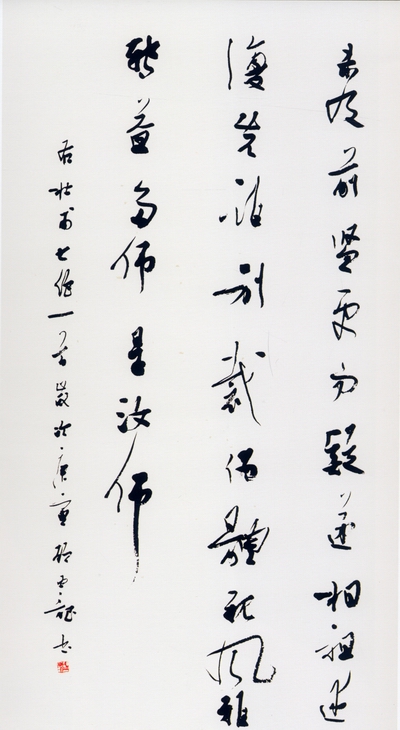 未及前賢更勿疑遞相祖述
復先誰別裁偽體親風雅
轉益多師是汝師
右杜甫七絕一首歲 龍書